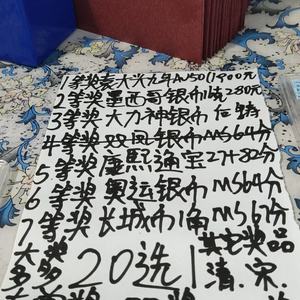 1等奖袁大头九年AU50(1900元
2等奖墨西哥银币1枚280元
3等奖大力神银币后铸
4等奖双凤银币MS64分
5等奖康熙通宝27+82分
6等奖奥运银币MS64分
7等奖长城币1角MS67分
大奖 其它奖品
多多 20选1 清.宋